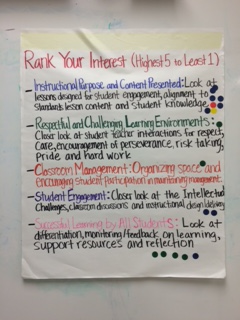 Rank Your Interest (Highest 5 to Least 1)
- Instructional Purpose and Content Presented: Look at
lessons designed for student engagement, alignment to
standards, lesson content and student knowledge.
- Respectful and Challenging Learning Environments:
Closer look at student teacher interactions for respect,
care, encouragement of perseverance, risk taking,
pride and hard work
- Classroom Management: Organizing space and
encouraging student participation in maintaining management.
- Student Engagement: Closer look at the Intellectual
Challenges, classroom discussions and instructional design/delivery
- Successful Learning by All Students: Look at
differentiation, monitoring/feedback on learning,
support resources and reflection